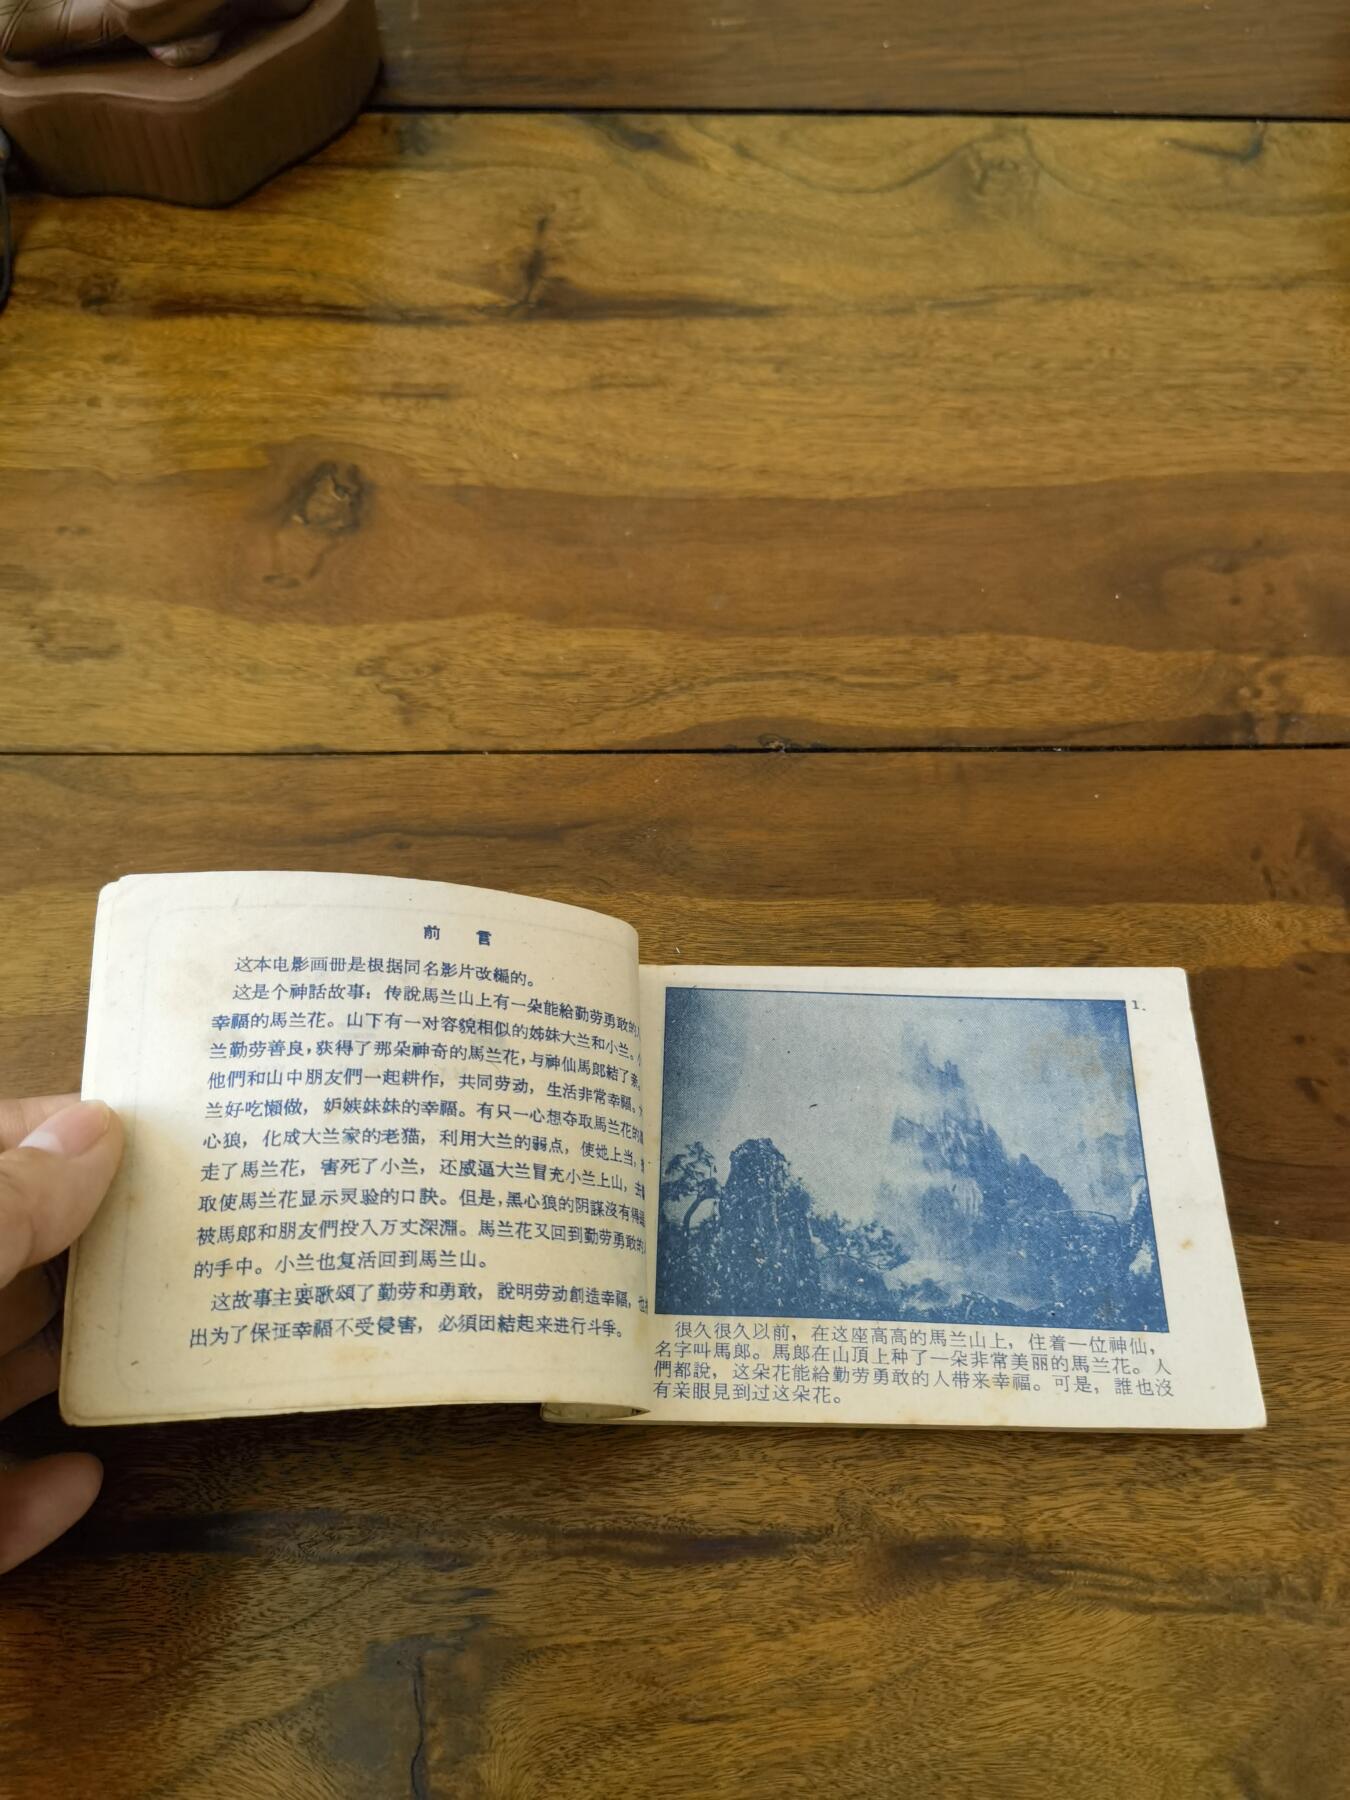 前言
这本电影画册是根据同名影片改編的。
这是个神話故事：传說馬兰山上有一朵能給勤劳勇敢的
幸福的馬兰花。山下有一对容貌相似的姊妹大兰和小兰。
兰勤劳善良，获得了那朵神奇的馬兰花，与神仙馬郎結了亲。
他們和山中朋友們一起耕作，共同劳动，生活非常幸福。
兰好吃懒做，妒嫉妹妹的幸福。有只一心想夺取馬兰花的
心狼，化成大兰家的老猫，利用大兰的弱点，使她上当，
走了馬兰花，害死了小兰，还威逼大兰冒充小兰上山，去
取使馬兰花显示灵验的口訣。但是，黑心狼的阴謀沒有得
被馬郎和朋友們投入万丈深淵。馬兰花又回到勤劳勇敢的
的手中。小兰也复活回到馬兰山。
这故事主要歌頌了勤劳和勇敢，說明劳动創造幸福，
出为了保证幸福不受侵害，必須团結起来进行斗爭。
1.
很久很久以前，在这座高高的馬兰山上，住着一位神仙，
名字叫馬郎。馬郎在山頂上种了一朵非常美丽的馬兰花。人
們都說，这朵花能給勤劳勇敢的人带来幸福。可是，誰也沒
有亲眼見到过这朵花。